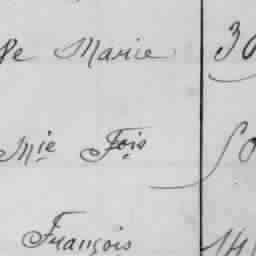 de Marie 30
Mie Fois 50
François 141